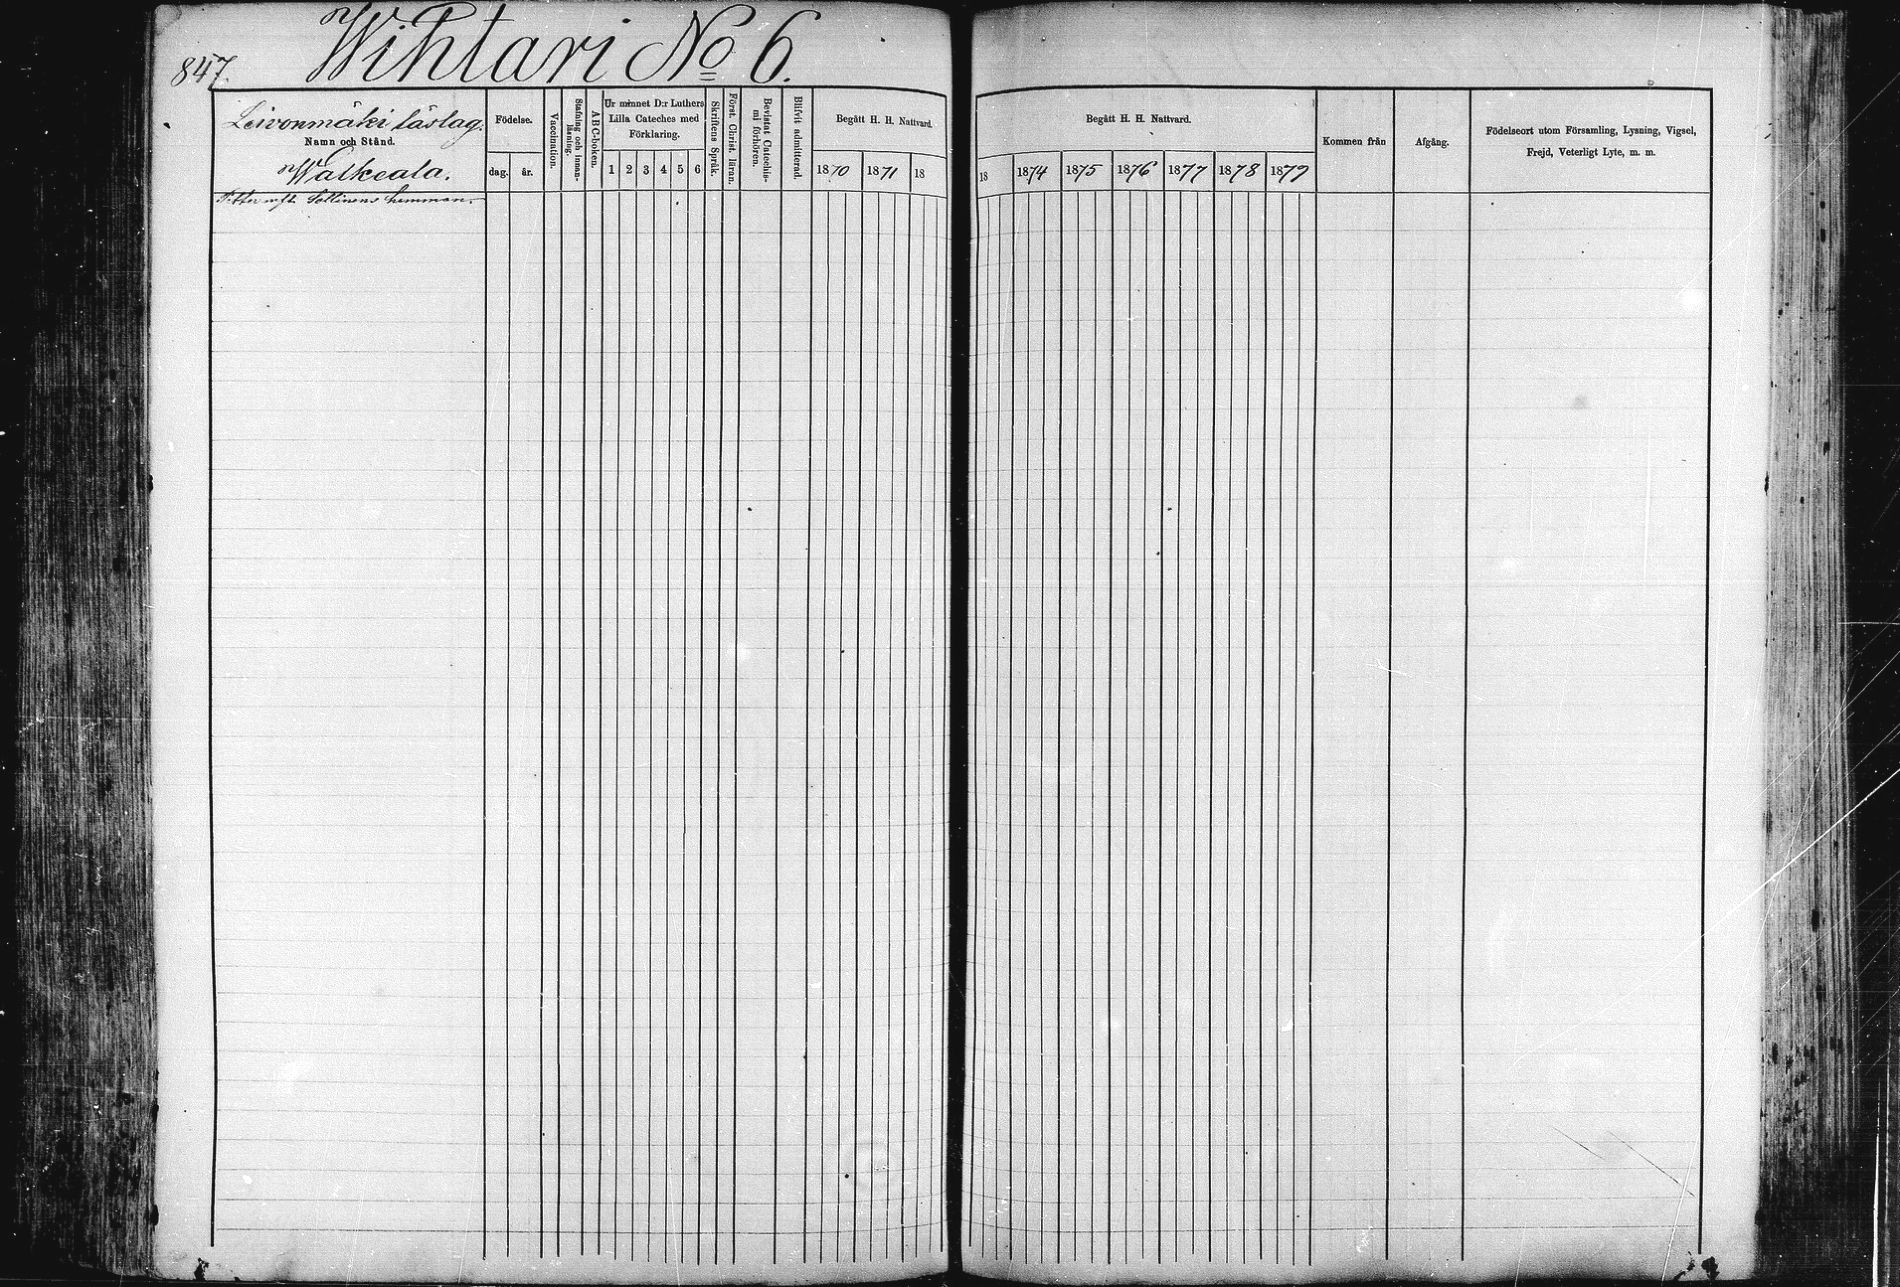 847.
Wihtari No 6.
Leivonmäki läslag.
Namn och Stånd.
Walkeala.
Födelse.
dag. år.
Vaccination.
Stafning och innan-
läsning.
ABC-boken.
Ur minnet D:r Luthers
Lilla Cateches med
Förklaring.
1 2 3 4 5 6
Skriftens Språk.
Först. Christ. läran.
Bevistat Catechis-
mi förhören.
Blifvit admitterad.
Begått H. H. Nattvard.
1870 1871 18
hemman.
Begått H. H. Nattvard.
18 1874 1875 1876 1877 1878 1879
Kommen från
Afgång.
Födelseort utom Församling, Lysning, Vigsel,
Frejd, Veterligt Lyte, m. m.